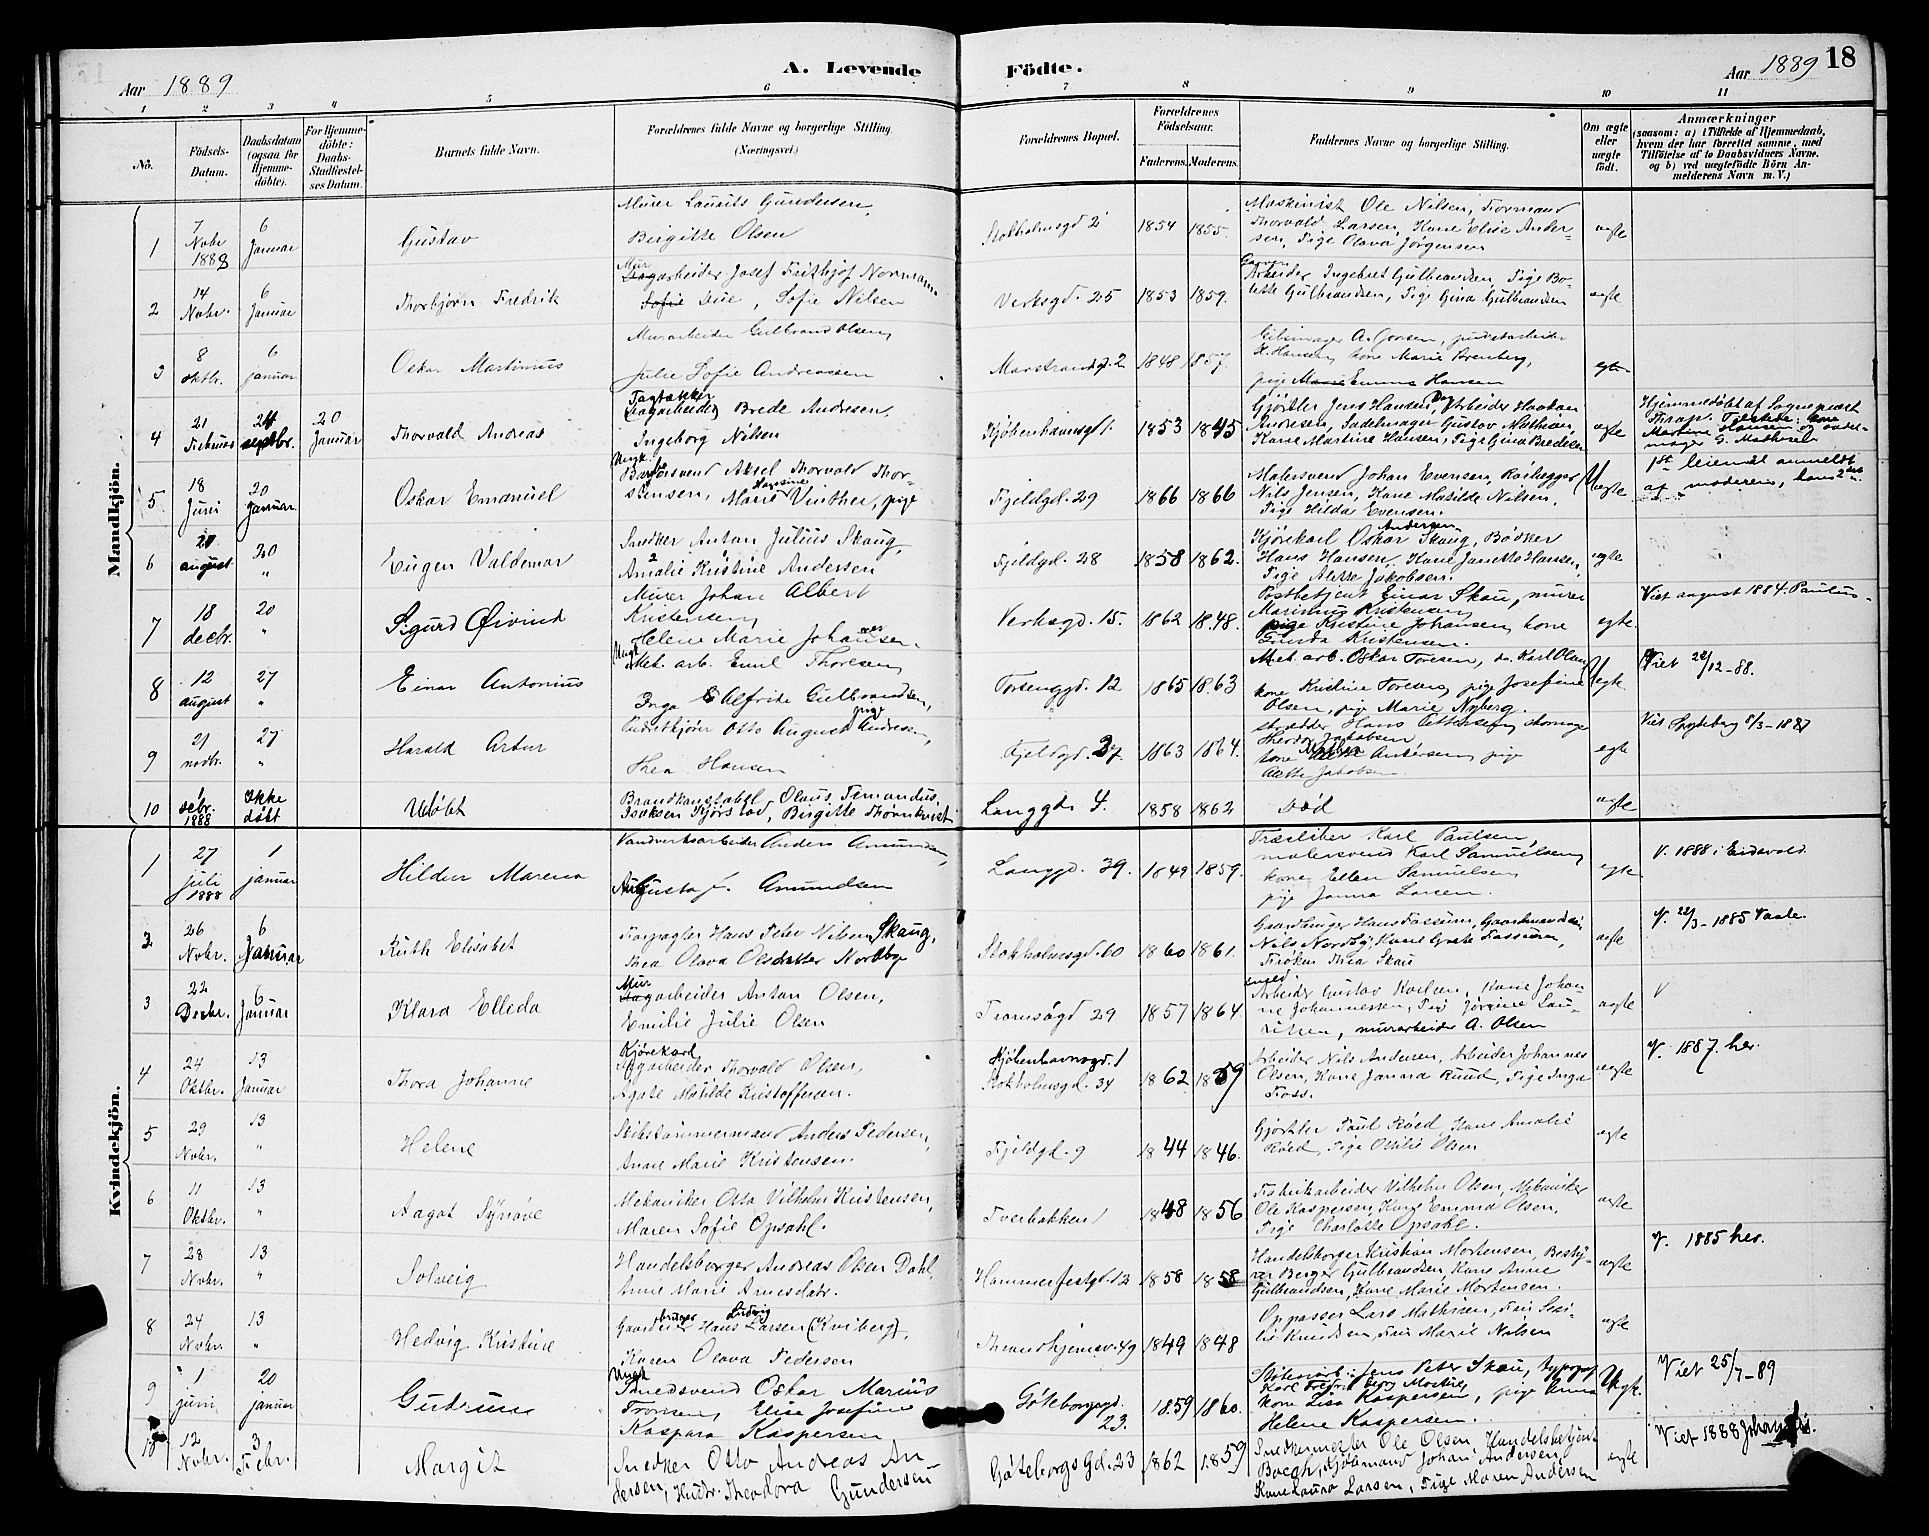 Aar 1889
A. Levende
Födte.
Aar 1889
18
1 2 3 4 5 6 7 8 9 10 11
No.
Födsels-Datum.
Daabsdatum (ogsaa for Hjemme-döbte).
For Hjemme-döbte: Daabs-Stadfæstel-ses Datum.
Barnets fulde Navn.
Forældrenes fulde Navne og borgerlige Stilling. (Næringsvei.)
Forældrenes Bopæl.
Forældrenes Födselsaar.
Faderens. Moderens.
Faddernes Navne og borgerlige Stilling.
Om ægte eller uægte födt.
Anmærkninger
(saasom: a) i Tilfælde af Hjemmedaab, hvem der har forrettet samme, med Tilföielse af to Daabsvidners Navne, og b) ved uægtefödte Börn Anmelderens Navn m. V.)
Mandkjön.
1 7 Novbr 1888 6 Januar Gustav
Murer Laurits Gundersen,
Birgitte Olsen
Stokholmsgd 2 1854 1855.
Maskinist Ole Nilsen, Formand
Thorvald Larsen, Kone Elise Ander-
sen, Pige Olava Jörgensen
ægte
2 14 Novbr. 6 Januar Thorbjörn Fredrik
Murarbeider Josef Frithjof Normann
Due, Sofie Nilsen
Verksgd. 25 1853 1859.
Arbeider Ingebret Gulbrandsen, Pige Bo-
lette Gulbrandsen, Pige Gina Gulbrandsen
ægte
3 8 oktbr. 6 januar Oskar Martinius
Murarbeider Gulbrand Olsen,
Julie Sofie Andreassen
Marstrandgd. 2 1848 1857.
K. Hansen, kone Marie Brenberg,
pige Emma Hansen
egte
4 21 24 septbr. 20 Januar Thorvald Andreas
Tagtækker Brede Andresen,
Ingeborg Nilsen
Kjøbenhavnsgd 1. 1853 1845
Gjörtler Jens Hansen, Arbeider Haakon
Andresen, Sadelmager Gustav Mathisen,
Kone Martine Hansen, Pige Gina Bredesen
ægte
Hjemmedöbt af Sognepræst
Martine Hansen og sadel-
mager G. Mathisen
5 18 Juni 20 Januar Oskar Emanuel
Ungk. Aksel Thorvald Thor-
stensen, Marie Vinther, pige
Fjeldgd. 29 1866 1866
Malersvend Johan Evensen, Rörlægger
Nils Jensen, Kone Matilde Nilsen,
Pige Hilda Evensen.
Uægte
1ste leiemål anmeldt
af moderen, hans 2det
6 20 august 20 " Eugen Valdemar
Snedker Anton Julius Skaug,
Amalie Kristine Andersen
Fjeldgd. 28 1858 1862.
Kjörekarl Oskar Andersen Skaug, Bödker
Hans Hansen, Kone Janette Hansen,
Pige Alette Jakobsen.
ægte
7 18 decbr. 20 " Sigurd Øivind
Murer Johan Albert
Kristensen,
Helene Marie Johansen
Verksgd. 15. 1862 1848.
Postbetjent Einar Skau, murer
Marinius Kristensen,
pige Kristine Johansen, kone
Gunda Kristensen.
egte.
Viet august 1884. Paulus.
8 12 august 27 " Einar Antonius
Ungk. Mek. arb. Emil Thoresen,
Inga Alfrida Gulbrandsen, pige
Torsenggd. 12 1865 1863
Mek. arb. Oskar Toresen, do. Karl Olsen,
kone Kristine Toresen, pige Josefine
Olsen, pige Marie Nyberg.
Uegte.
Viet 26/12-88.
9 21 novbr. 27 " Harald Artur
Otto August Andresen,
Thea Hansen
Fjeldgd. 27. 1863 1864.
skrædder Hans Pettersen, skomager
Theodor Jakobsen
kone Andersen, pige
Alette Jakobsen.
egte
Viet Spydeberg 8/3-1887
10 1 decbr. 1888 Ikke döbt Udöbt
Brandkonstabel Olaus Fernandus
Isaksen Kjörstad, Birgitte Thörnkvist
Langgd. 4. 1858 1862 Död ægte
Kvindekjön.
1 27 juli 1888 1 januar Hildur Marena
Vandverksarbeider Anders Amundsen,
Augusta f. Amundsen
Langgd. 39. 1849 1859.
Træsliber Karl Paulsen,
malersvend Karl Samuelsen,
kone Ellen Samuelsen,
pige Janna Larsen.
egte
V. 1888 i Eidsvold.
2 26 Novbr. 6 Januar Ruth Elisabet
Forpagter Hans Peter Nilsen Skaug,
Thea Olava Olsdatter Nordbye
Stokholmsgd. 60 1860 1861.
Hans Fossum, Gaardmand
Nils Nordby, Kone Grete Fossum,
Fröken Thea Skau
ægte
V. 22/3-1885 Vaale.
3 22 Decbr. 6 Januar Klara Elleda
Murarbeider Anton Olsen,
Emilie Julie Olsen
Tromsögd 29 1857 1864
Arbeider Gustav Karlsen, Kone Johan-
ne Johannessen, Pige Jörgine Lau-
ritsen, murarbeider A. Olsen
ægte
V
4 24 Oktbr. 13 Januar Thora Johanne
Kjörekarl Thorvald Olsen,
Agate Matilde Kristoffersen.
Kjöbenhavnsgd. 1
Stokholmsgd. 34 1862 1859
Arbeider Nils Andersen, Arbeider Johannes
Olsen, Kone Janna Ruud, Pige Inga
Foss.
ægte
V. 1887. her.
5 29 Novbr. 13 " Helene
Skibstömmermand Anders Pedersen,
Anne Marie Kristensen.
Fjeldgd. 9 1844 1846.
Gjörtler Paul Röed, Kone Amalie
Röed, Pige Otilie Olsen
ægte
6 11 Oktbr. 13 " Aagot Synöve
Mekaniker Otto Vilhelm Kristensen,
Maren Sofie Opsahl.
Tverbakken 1 1848 1856
Fabrikarbeider Vilhelm Olsen, Mekaniker
Ole Kaspersen, Kone Emma Olsen,
Pige Charlotte Opsahl.
ægte
7 28 Novbr. 13 " Solveig
Handelsborger Andreas Olsen Dahl,
Anne Marie Arnesdatr.
Hammerfestgd. 12 1858 1858
Handelsborger Kristian Mortensen, Besty-
rer Berger Gulbrandsen, Kone Anne
Gulbrandsen, Kone Marie Mortensen.
ægte
V. 1885 her.
8 24 Novbr. 13 " Hedvig Kristine
Gaardbruger Hans Ludvig Larsen (Kviberg),
Karen Olava Pedersen
Throndhjemsv. 49 1849 1848
Oppasser Lars Mathisen,
Knudsen, Marie Nilsen
ægte
9 1 juni 20 januar Gudrun
Ungk. Smedsvend Oskar Marius
Tronsen, Elise Josefine
Kaspara Kaspersen
Göteborgsgd. 23. 1859 1860.
Jens Peter Skau, typograf
Karl Fredrik Georg Mostue,
kone Lisa Kaspersen, pige Anna
Helene Kaspersen.
Uegt.
Viet 25/7-89
10 12 Novbr. 3 Febr. Margit
Snedker Otto Andreas An-
dersen, Hustr. Theodora Gundersen
Göteborgs Gd. 23 1862 1859
Snedkermester Ole Olsen, Handelsbetjent
Boegh, Sjömand Johan Andersen,
Kone Laura Larsen, Pige Maren Andersen
ægte
Viet 1888 Johannes.